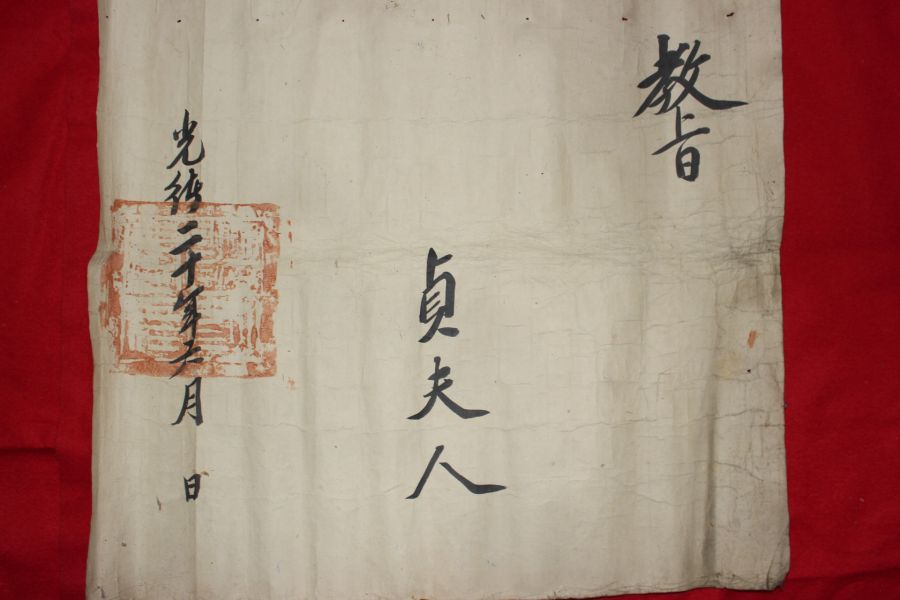 教旨
貞夫人
光緒二十年六月 日